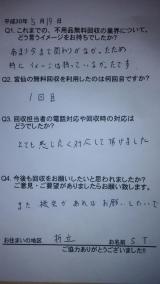 平成30年5月19日
Q1. これまでの、不用品無料回収の業界について、
どう言うイメージをお持ちでしたか?
あまり今まで関わりがなかったため
特にイメージは持っていなかったです
Q2. 宮仙の無料回収を利用したのは何回目ですか?
1回目
Q3. 回収担当者の電話対応や回収時の対応は
どうでしたか?
とても感じよく対応して頂けました
Q4. 今後も回収をお願いしたいと思われましたか?
ご意見・ご要望がありましたらお願い致します。
また機会があればお願いしたいです
お住まいの地区 折立 お名前 S T
ご協力ありがとうございました!!